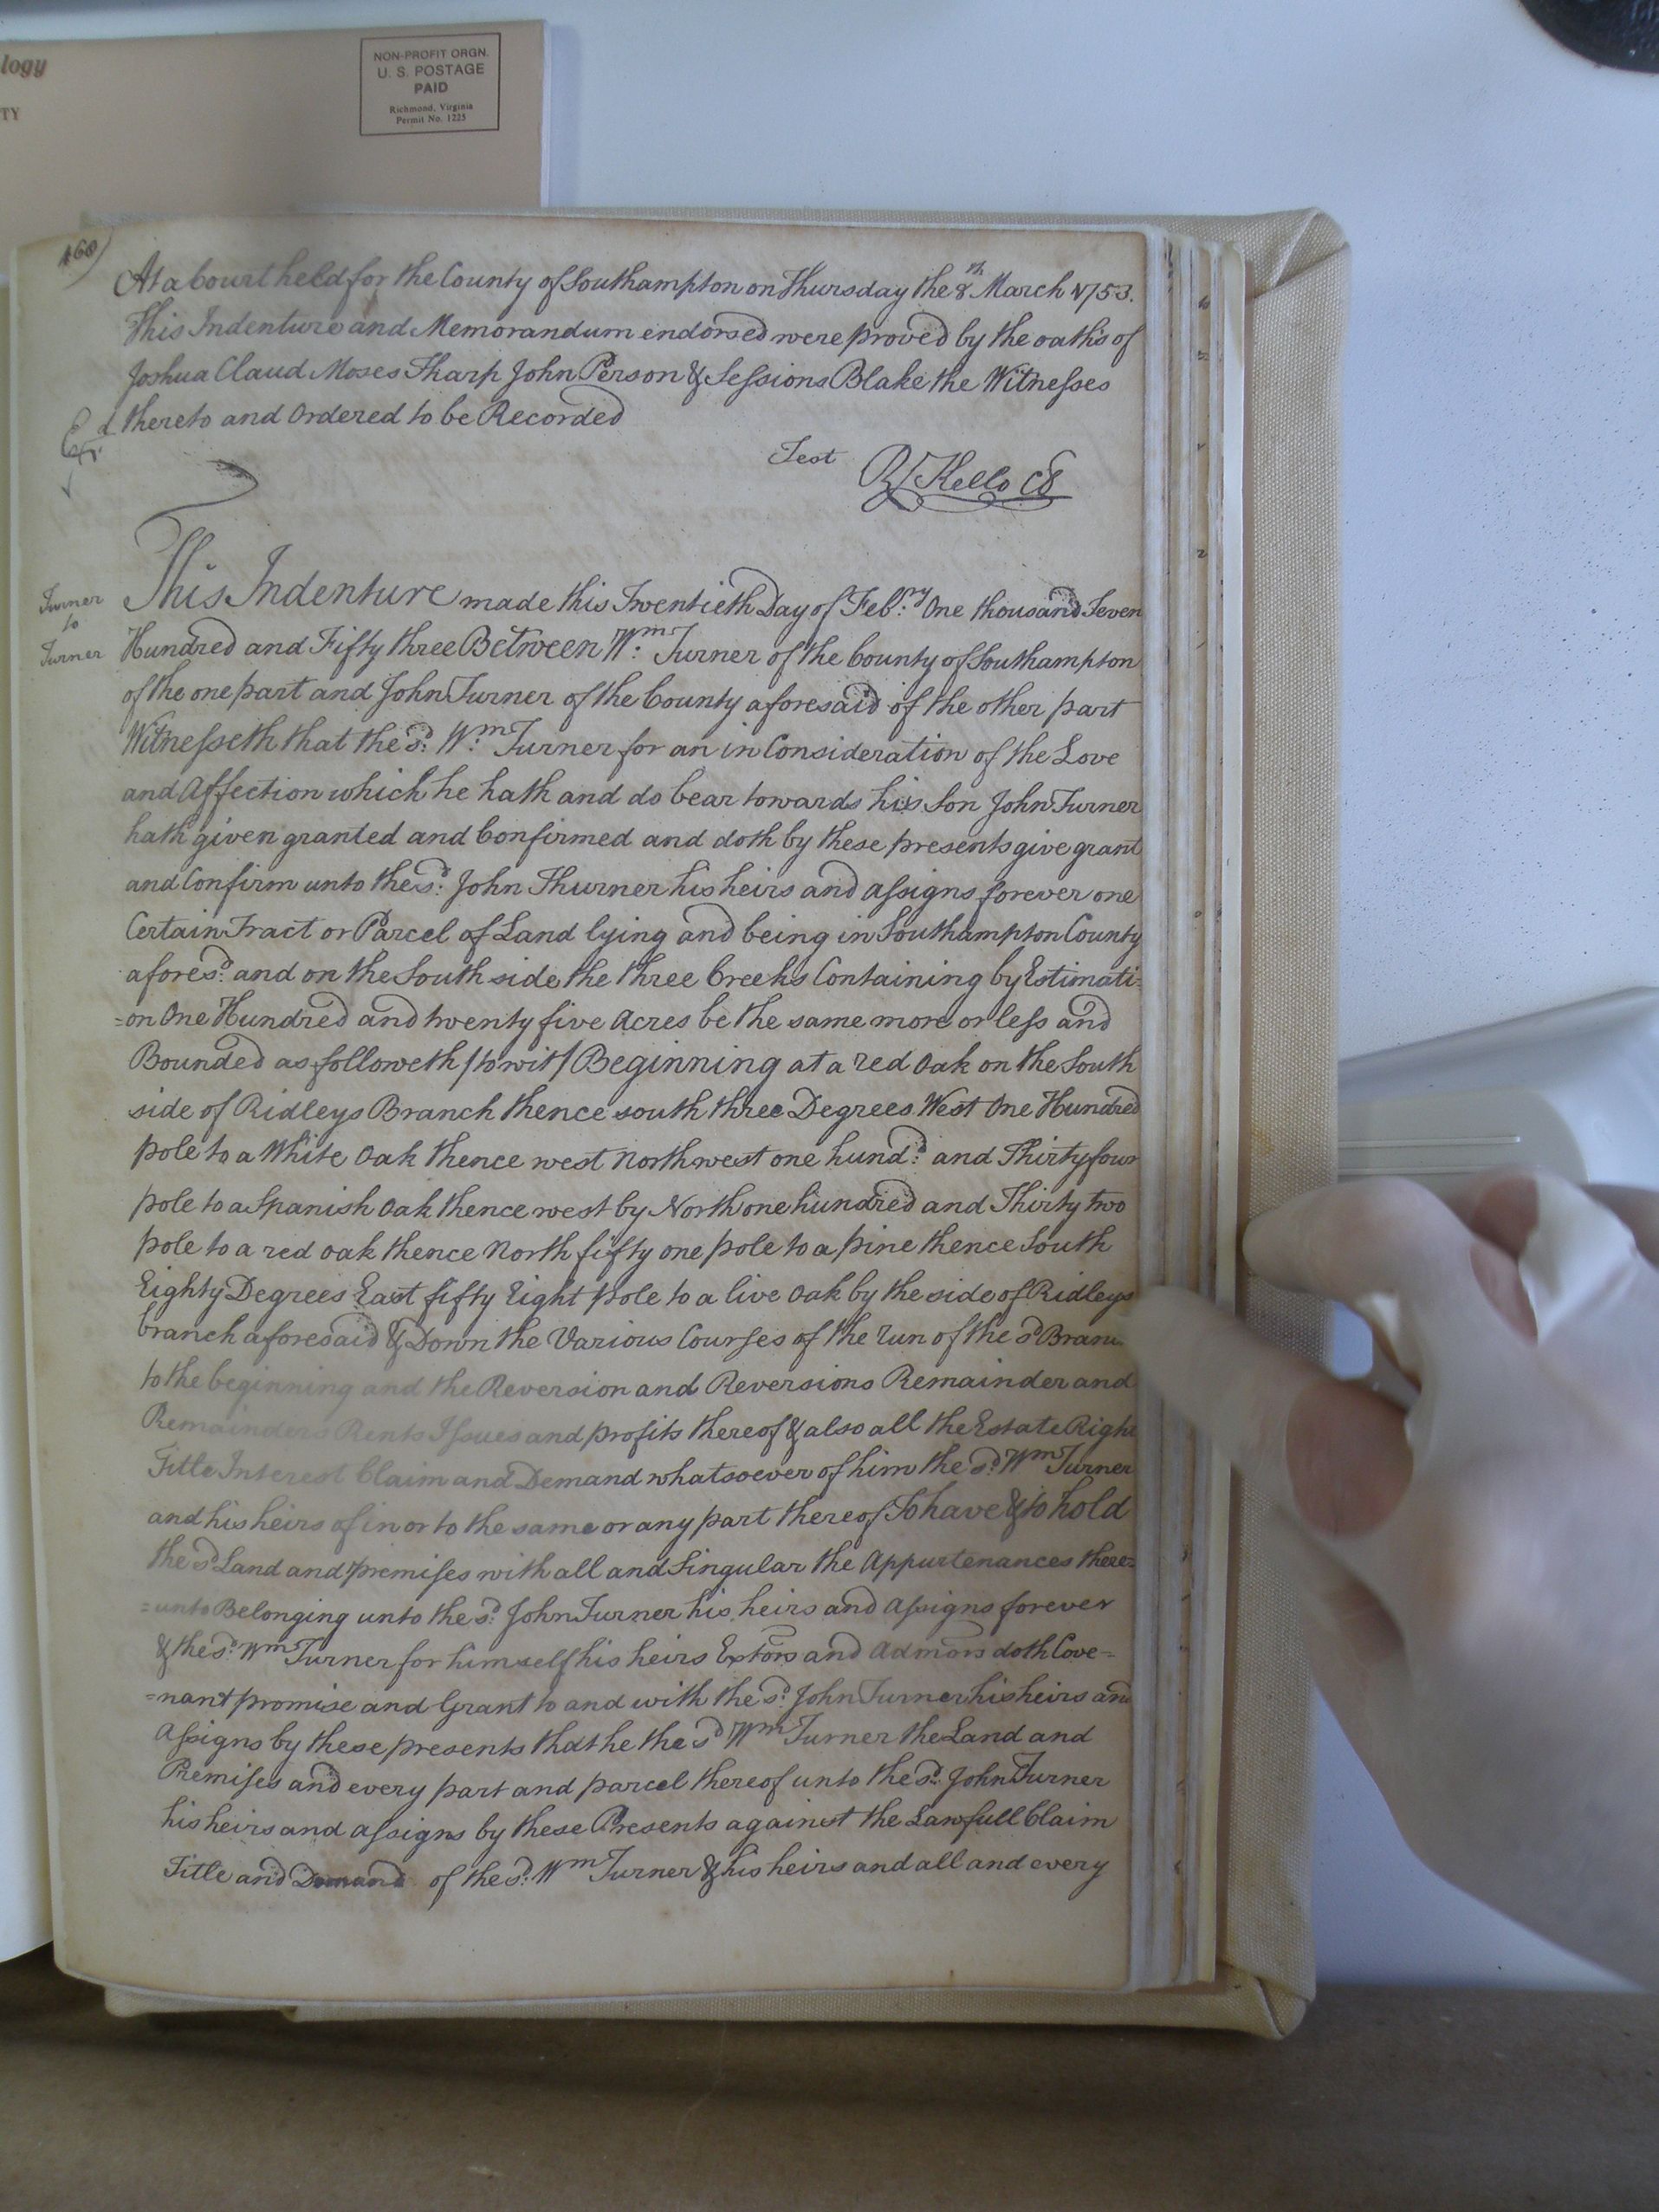 logy
TY
NON-PROFIT ORGN.
U. S. POSTAGE
PAID
Richmond, Virginia
Permit No. 1225
160)
At a Court held for the County of Southampton on Thursday the 8th March 1753.
This Indenture and Memorandum endorsed were proved by the oaths of
Joshua Claud Moses Tharp John Person & Sessions Blake the Witnesses
thereto and Ordered to be Recorded
Exd
Test Rd Kello CC
Turner
to
Turner
This Indenture made this Twentieth Day of Feb:ry One thousand Seven
Hundred and Fifty three Between Wm: Turner of the County of Southampton
of the one part and John Turner of the County aforesaid of the other part
Witnesseth that the sd: Wm: Turner for an in Consideration of the Love
and Affection which he hath and do bear towards his Son John Turner
hath given granted and Confirmed and doth by these presents give grant
and Confirm unto the sd: John Thurner his heirs and assigns forever one
Certain Tract or Parcel of Land lying and being in Southampton County
aforesd: and on the South side the three Creeks Containing by Estimati=
=on One Hundred and twenty five Acres be the same more or less and
Bounded as followeth /towit/ Beginning at a red Oak on the South
side of Ridleys Branch thence south three Degrees West One Hundred
pole to a White Oak thence west Northwest one hundd: and Thirty four
pole to a Spanish Oak thence west by North one hundred and Thirty two
pole to a red oak thence North fifty one pole to a pine thence South
Eighty Degrees East fifty Eight pole to a live Oak by the side of Ridleys
branch aforesaid & Down the Various Courses of the run of the sd
to the beginning and the Reversion and Reversions Remainder and
Remainders Rents Issues and profits thereof & also all the Estate Right
Title Interest Claim and Demand whatsoever of him the sd: Wm Turner
and his heirs of in or to the same or any part thereof To have & to hold
the sd Land and premises with all and Singular the Appurtenances there=
=unto Belonging unto the sd: John Turner his heirs and assigns forever
& the sd: Wm Turner for himself his heirs Extors and Admors doth Cove=
=nant promise and Grant to and with the sd: John Turner his heirs and
Assigns by these presents that he the sd Wm Turner the Land and
Premises and every part and parcel thereof unto the sd: John Turner
his heirs and assigns by these Presents against the Lawfull Claim
Title and Demand of the sd: Wm Turner & his heirs and all and every